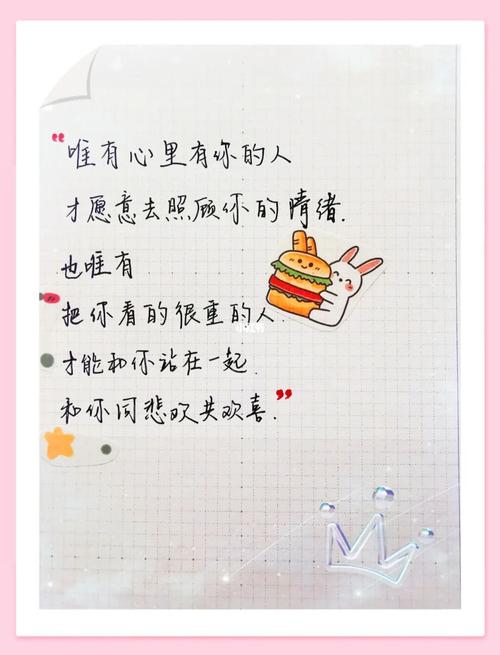 “唯有心里有你的人
才愿意去照顾你的情绪.
也唯有
把你看的很重的人.
才能和你站在一起.
和你同悲欢共欢喜.”